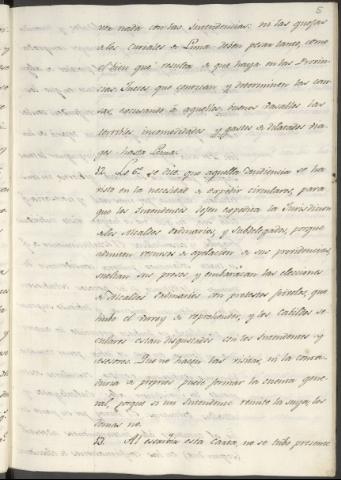 5
ver nada con las Intendencias: ni las quejas
de los Curiales de Lima deben pesar tanto, como
el bien que resulta de que haya en las Provin-
cias Jueces que conozcan y determinen las cau-
sas, escusando á aquellos buenos Vasallos las
terribles incomodidades y gastos de dilatados via-
ges hasta Lima.
12. Lo 6º se dice que aquella Audiencia se ha
visto en la necesidad de expedir circulares, para
que los Intendentes dejen expedita la Jurisdiccion
de los Alcaldes ordinarios, y Subdelegados, porque
admiten recursos de apelacion de sus providencias,
sueltan sus presos, y embarazan las elecciones
de Alcaldes ordinarios con pretestos frívolos, que
tubo el Virrey de reprehender, y los Cabildos se-
culares están disgustados con los Intendentes y
asesores. Que no hacen las visitas, ni la conta-
duria de propios puede formar la cuenta gene-
ral, porque si un Intendente remite la suya, los
demas no.
13. Al escribir esta Carta, no se tubo presente